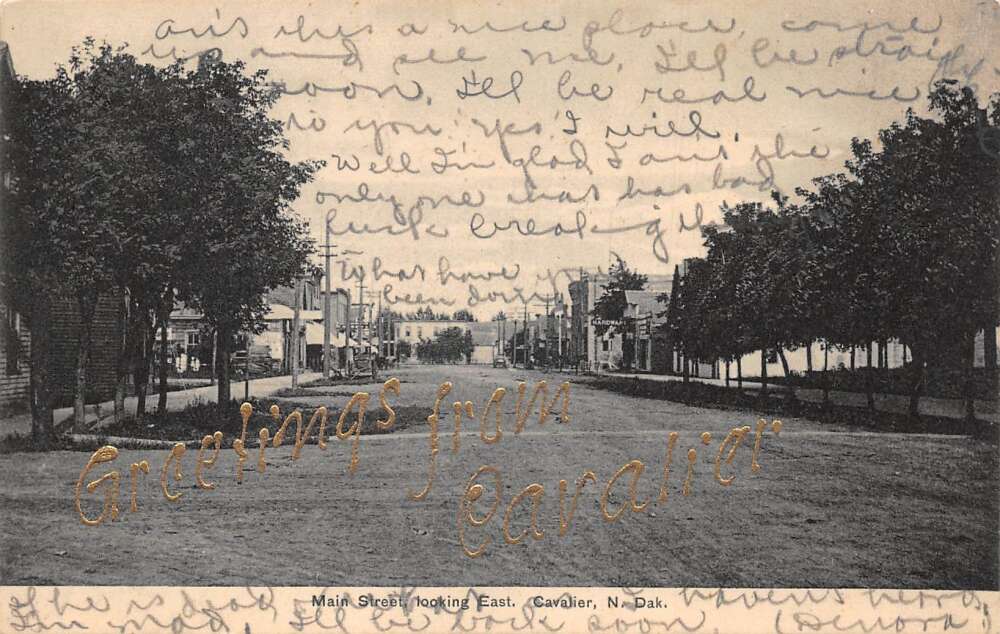 an's this a nice place, come
up and see me, I'll be straight
soon, I'll be real nice
to you, yes I will,
Well I'm glad I aint the
only one that has bad
luck breaking th
What have you
been doing
HARDWARE
Greetings from
Cavalier
Main Street, looking East. Cavalier, N. Dak.
He is dead I havent heard,
I'm mad, I'll be back soon, (Denora)